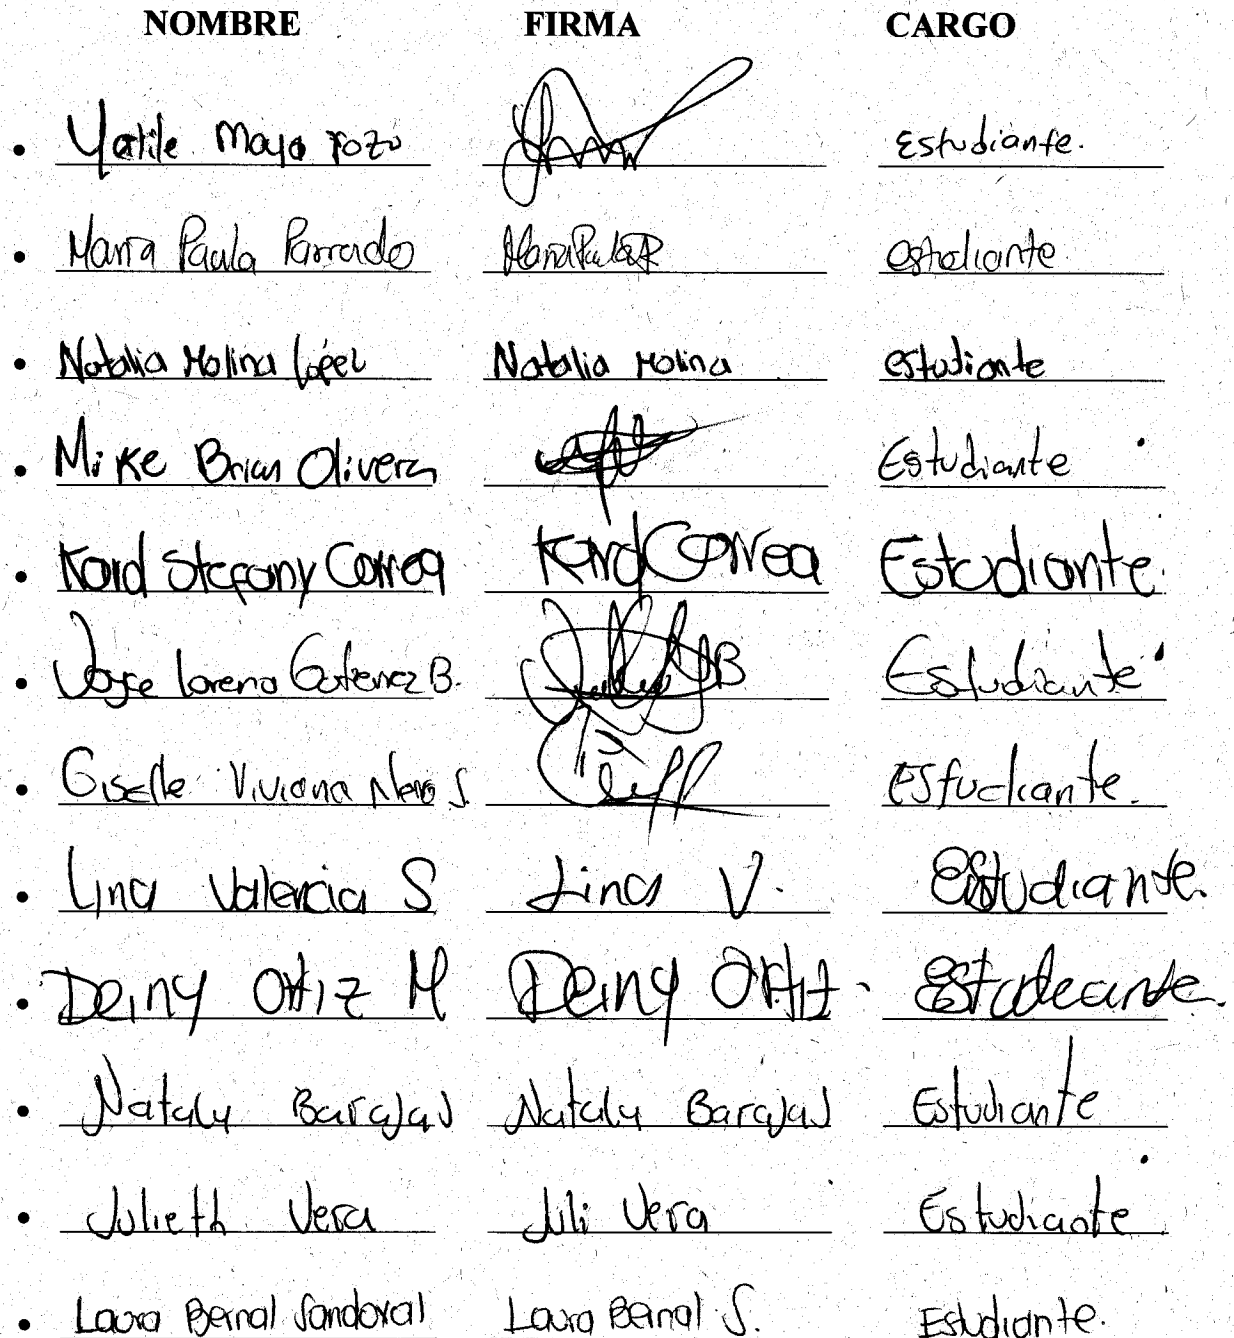 NOMBRE FIRMA CARGO
Maya Estudiante.
Maria Paula Parrado Maria Paula P estudiante.
Natalia Molina López Natalia Molina estudiante
Mike Brian Olivera Estudiante
Stefany Correa Correa Estudiante.
Lorena Gutierrez B. B Estudiante
Giselle Viviana S. Estudiante.
Lina Valencia S Lina V. Estudiante.
Deiny Ortiz M Deiny Ortiz. Estudeante.
Nataly Barajas Nataly Barajas Estudiante
Julieth Vera Juli Vera Estudiante
Laura Bernal Sandoval Laura Bernal S. Estudiante.